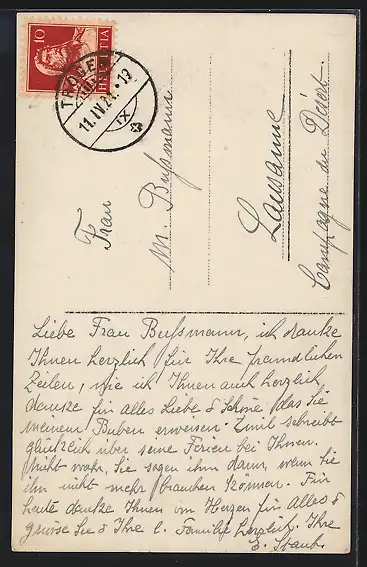 10
HELVETIA
TROGEN
11.IV.21.-19
IX
Frau
M. Bußmann
Lausanne
Campagne du Désert.
Liebe Frau Bußmann, ich danke
Ihnen herzlich für Ihre freundlichen
Zeilen, wie ich Ihnen auch herzlich
danke für alles Liebe & Schöne, das Sie
meinem Buben erweisen. Emil schreibt
glücklich über seine Ferien bei Ihnen.
Nicht wahr, Sie sagen ihm dann, wenn Sie
ihn nicht mehr brauchen können. Für
heute danke Ihnen von Herzen für Alles &
grüsse Sie & Ihre l. Familie herzlich. Ihre
E. Staub.